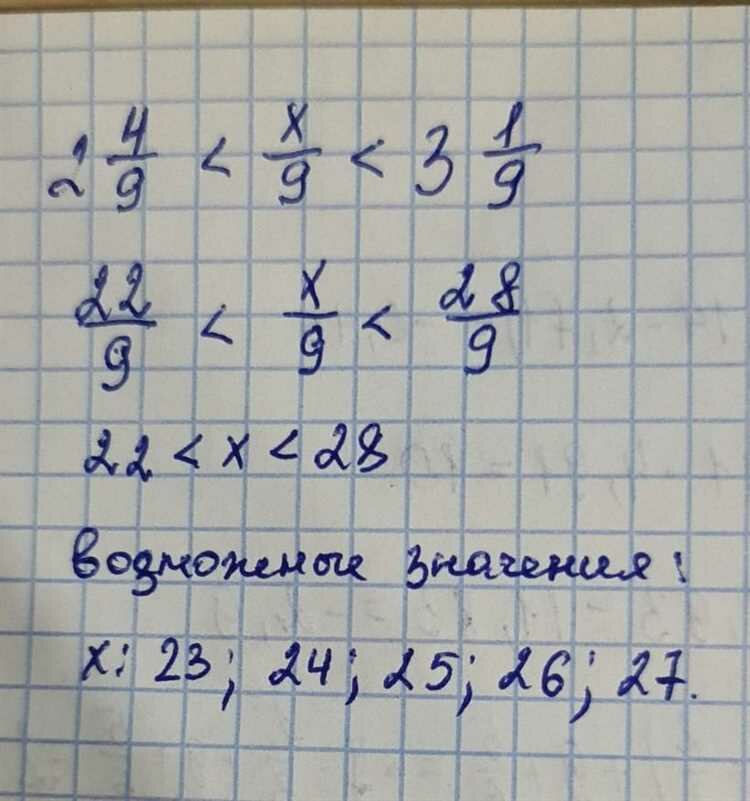 2 4/9 < x/9 < 3 1/9
22/9 < x/9 < 28/9
22 < x < 28
возможные значения:
x: 23; 24; 25; 26; 27.